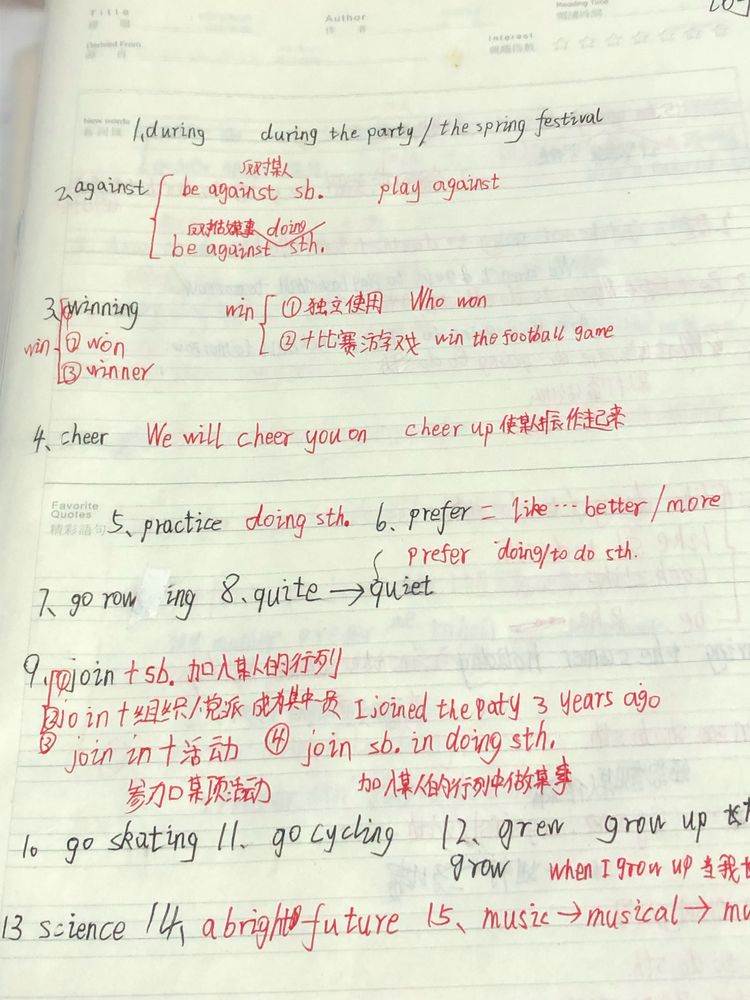 Title
Author
Reading Time
Derived From
Interest
☆☆☆☆☆☆☆
New words
1, during during the party / the spring festival
反对某人
2, against be against sb. play against
反对做某事 doing
be against sth.
3, ① winning win ① 独立使用 Who won
win ② won ② 十比赛游戏 win the football game
③ winner
4, cheer We will cheer you on cheer up 使某人振作起来
Favorite
Quotes
精彩語句
5、practice doing sth. 6、prefer = like…better/more
prefer doing/to do sth.
7、go row ing 8、quite → quiet
9、① join + sb. 加入某人的行列
② join 十组织/党派 成为其中一员 I joined the paty 3 years ago
③ join in 十活动 ④ join sb. in doing sth.
参加某项活动 加入某人的行列中做某事
10 go skating 11、go cycling 12、grew grow up
grow when I grow up 当我
13 science 14, a bright future 15、music → musical →